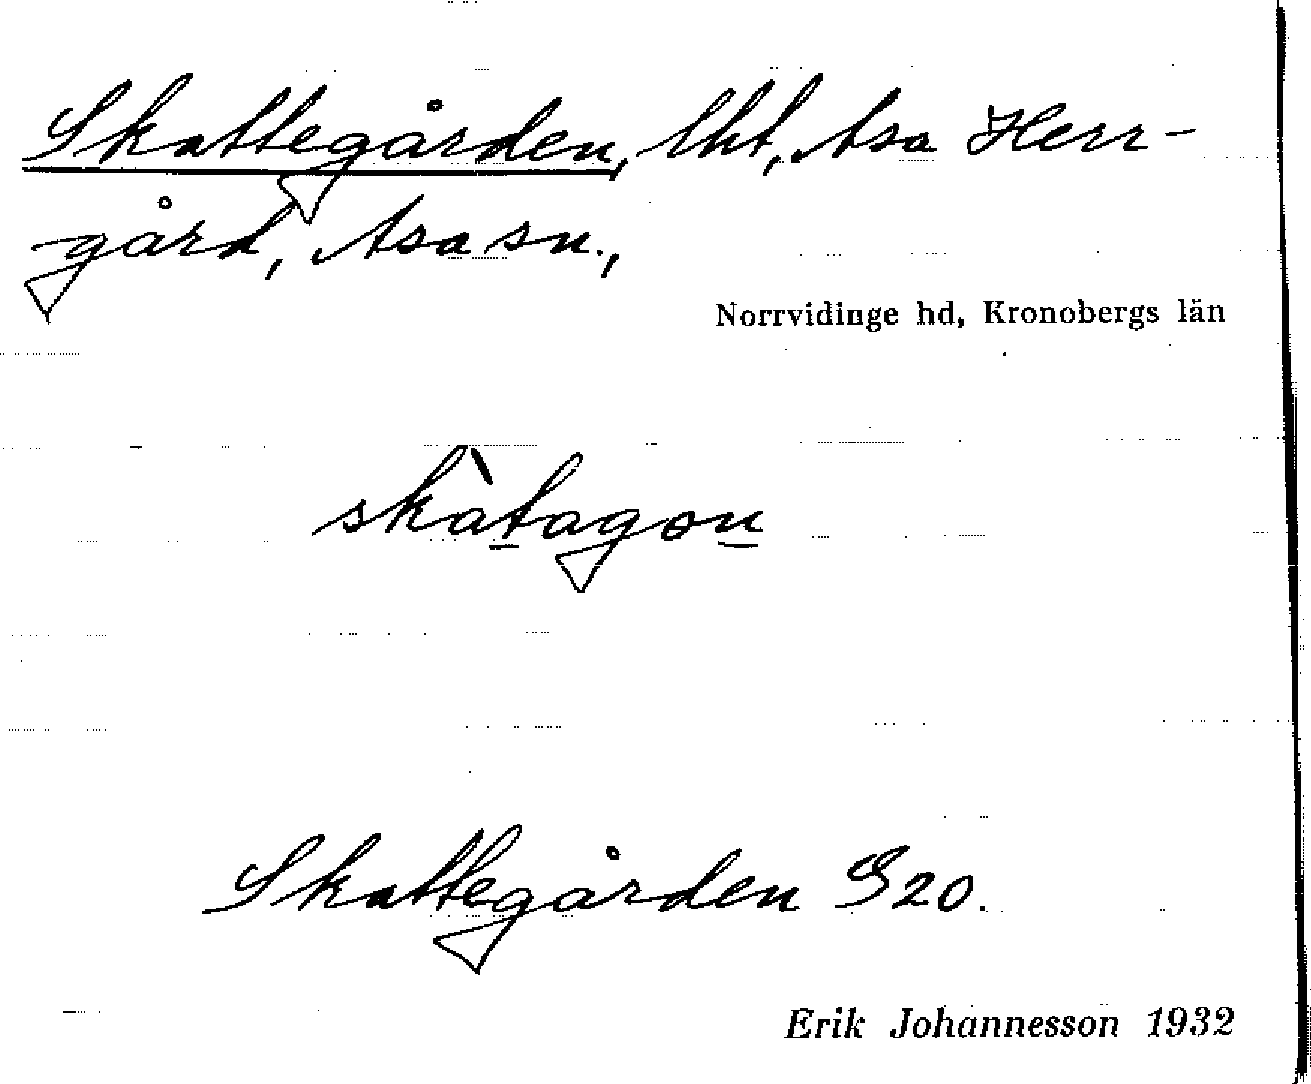 Skattegården, lht, Asa Herr-
gård, Asa sn.,
Norrvidinge hd, Kronobergs län
skàtagon
Skattegården G20.
Erik Johannesson 1932